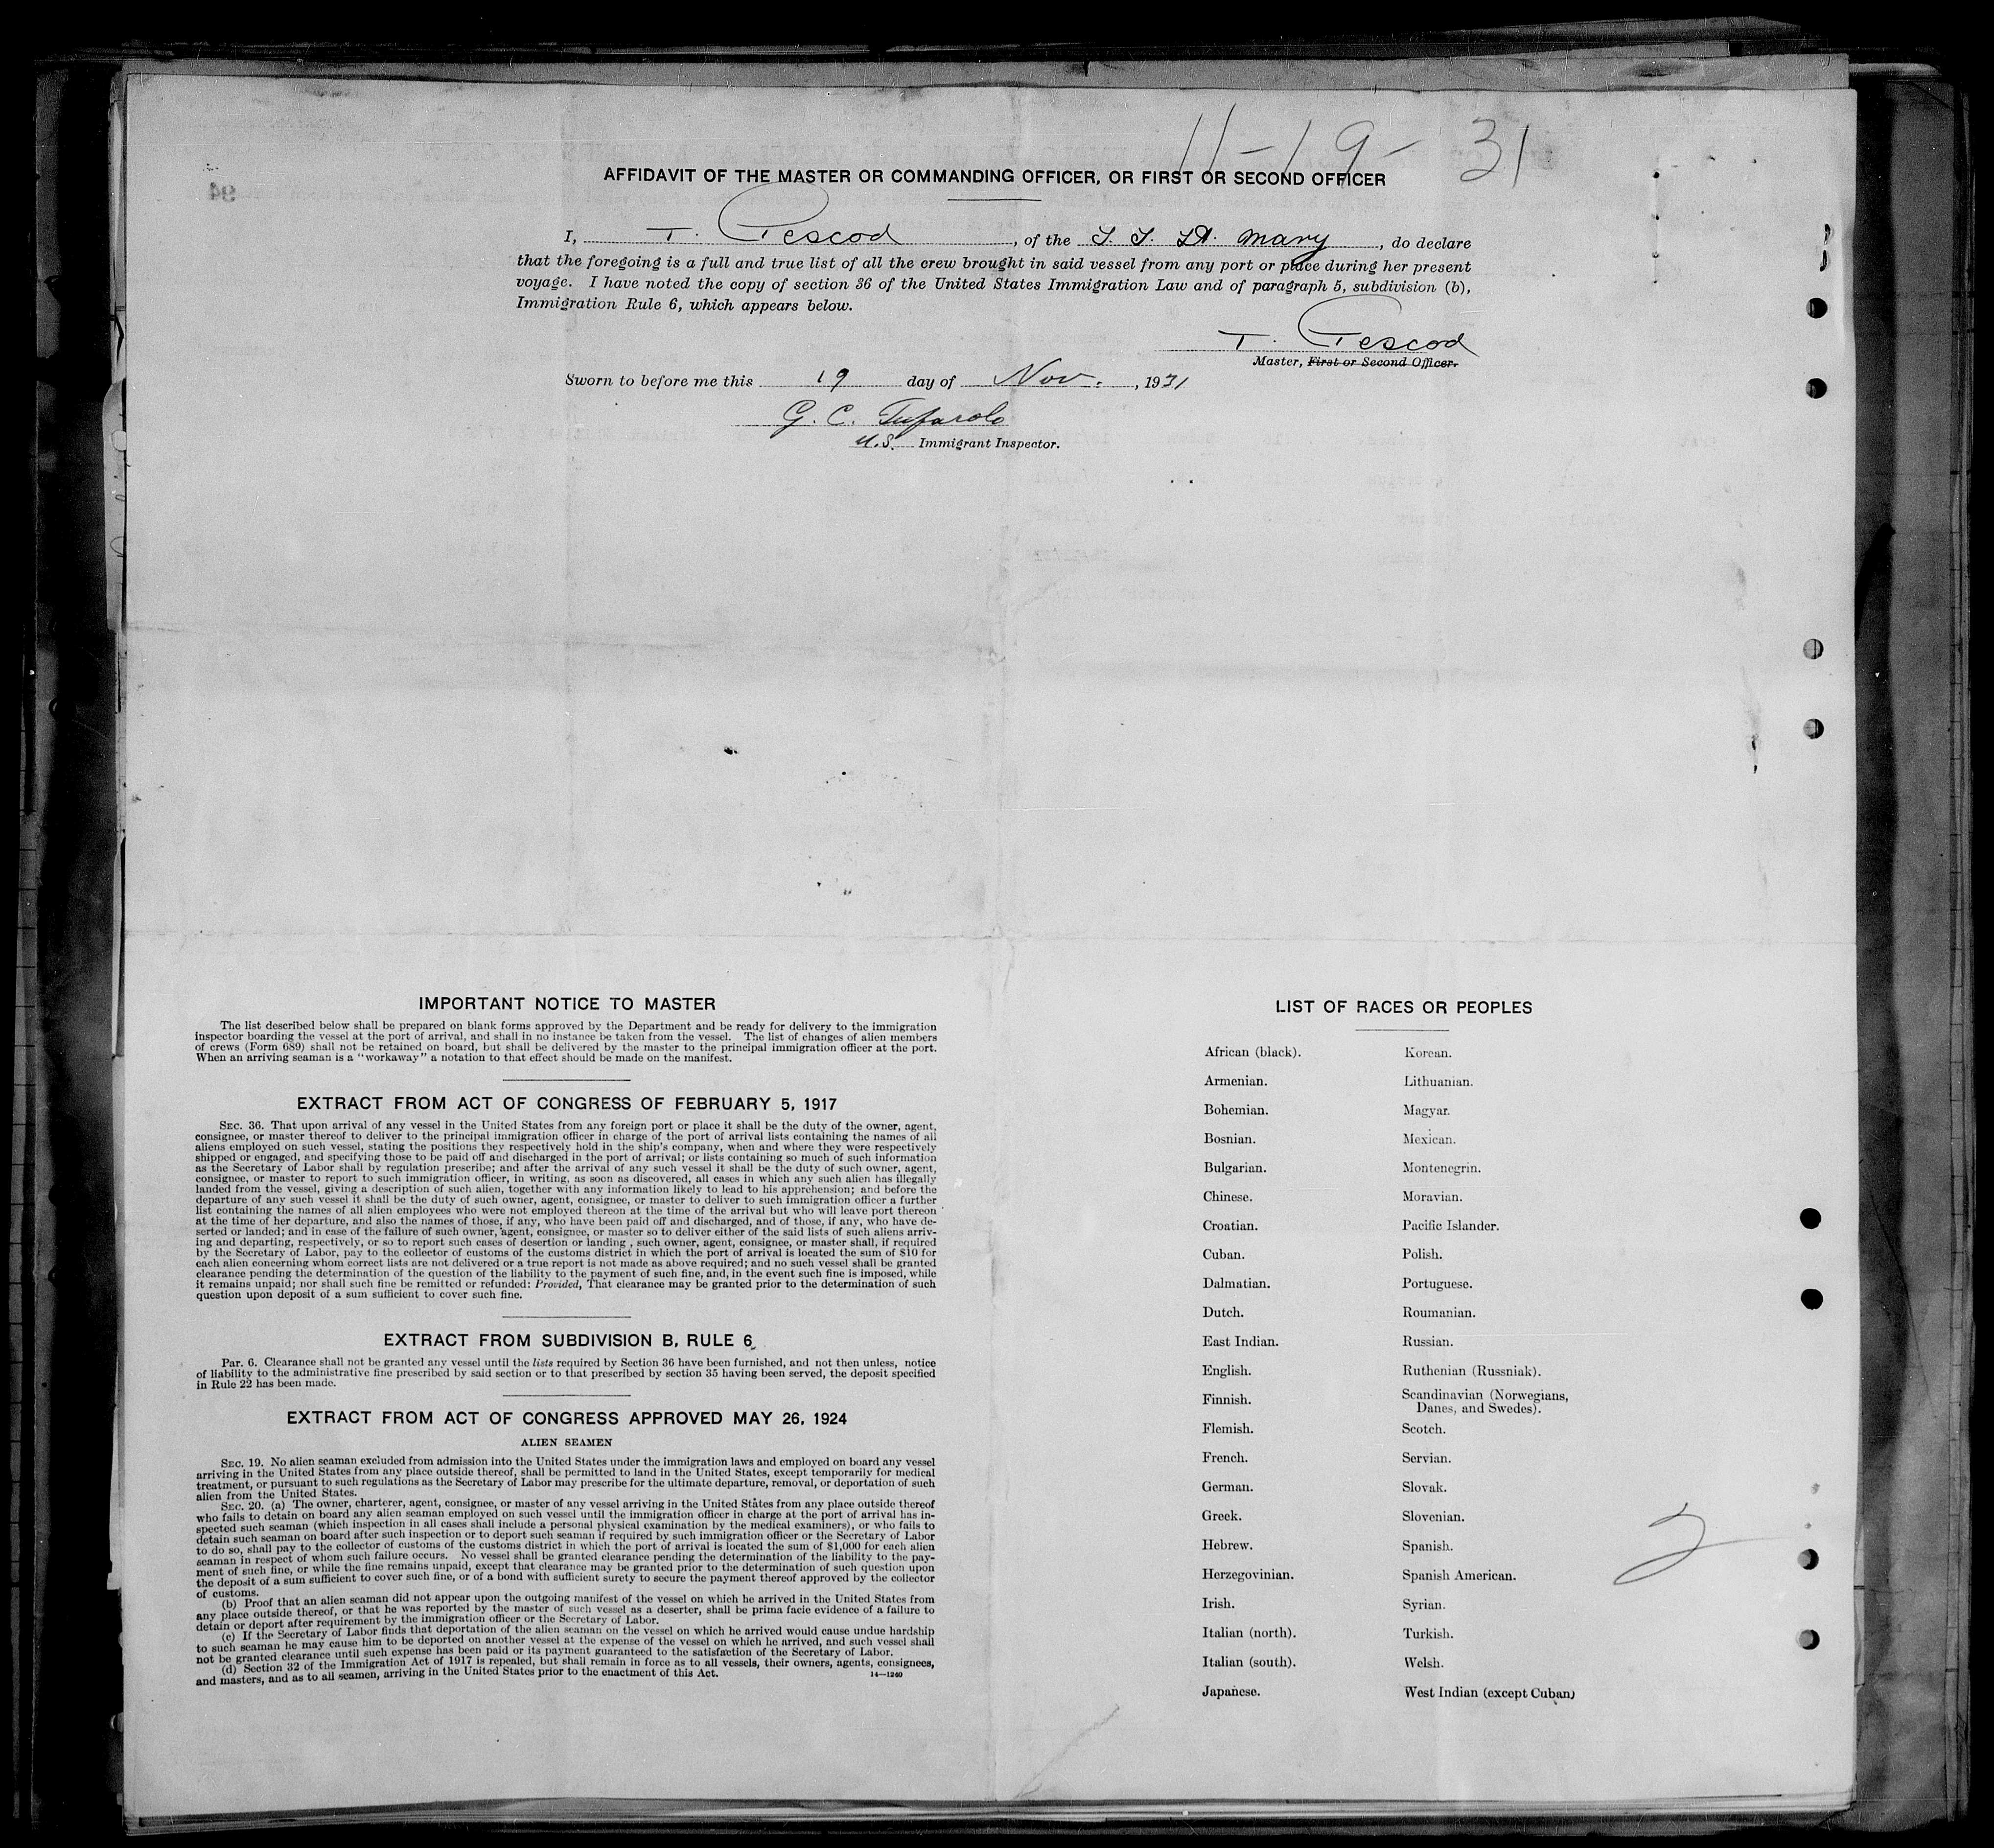 11-19-31
AFFIDAVIT OF THE MASTER OR COMMANDING OFFICER, OR FIRST OR SECOND OFFICER
I, T. Pescod, of the S. S. St. Mary, do declare
that the foregoing is a full and true list of all the crew brought in said vessel from any port or place during her present
voyage. I have noted the copy of section 36 of the United States Immigration Law and of paragraph 5, subdivision (b),
Immigration Rule 6, which appears below.
T. Pescod
Master, First or Second Officer.
Sworn to before me this 19 day of Nov., 1931
G. C. Tufarolo
U.S. Immigrant Inspector.
IMPORTANT NOTICE TO MASTER
The list described below shall be prepared on blank forms approved by the Department and be ready for delivery to the immigration
inspector boarding the vessel at the port of arrival, and shall in no instance be taken from the vessel. The list of changes of alien members
of crews (Form 689) shall not be retained on board, but shall be delivered by the master to the principal immigration officer at the port.
When an arriving seaman is a "workaway" a notation to that effect should be made on the manifest.
EXTRACT FROM ACT OF CONGRESS OF FEBRUARY 5, 1917
SEC. 36. That upon arrival of any vessel in the United States from any foreign port or place it shall be the duty of the owner, agent,
consignee, or master thereof to deliver to the principal immigration officer in charge of the port of arrival lists containing the names of all
aliens employed on such vessel, stating the positions they respectively hold in the ship's company, when and where they were respectively
shipped or engaged, and specifying those to be paid off and discharged in the port of arrival; or lists containing so much of such information
as the Secretary of Labor shall by regulation prescribe; and after the arrival of any such vessel it shall be the duty of such owner, agent,
consignee, or master to report to such immigration officer, in writing, as soon as discovered, all cases in which any such alien has illegally
landed from the vessel, giving a description of such alien, together with any information likely to lead to his apprehension; and before the
departure of any such vessel it shall be the duty of such owner, agent, consignee, or master to deliver to such immigration officer a further
list containing the names of all alien employees who were not employed thereon at the time of the arrival but who will leave port thereon
at the time of her departure, and also the names of those, if any, who have been paid off and discharged, and of those, if any, who have de-
serted or landed; and in case of the failure of such owner, agent, consignee, or master so to deliver either of the said lists of such aliens arriv-
ing and departing, respectively, or so to report such cases of desertion or landing, such owner, agent, consignee, or master shall, if required
by the Secretary of Labor, pay to the collector of customs of the customs district in which the port of arrival is located the sum of $10 for
each alien concerning whom correct lists are not delivered or a true report is not made as above required; and no such vessel shall be granted
clearance pending the determination of the question of the liability to the payment of such fine, and, in the event such fine is imposed, while
it remains unpaid; nor shall such fine be remitted or refunded: Provided, That clearance may be granted prior to the determination of such
question upon deposit of a sum sufficient to cover such fine.
EXTRACT FROM SUBDIVISION B, RULE 6
Par. 6. Clearance shall not be granted any vessel until the lists required by Section 36 have been furnished, and not then unless, notice
of liability to the administrative fine prescribed by said section or to that prescribed by section 35 having been served, the deposit specified
in Rule 22 has been made.
EXTRACT FROM ACT OF CONGRESS APPROVED MAY 26, 1924
ALIEN SEAMEN
SEC. 19. No alien seaman excluded from admission into the United States under the immigration laws and employed on board any vessel
arriving in the United States from any place outside thereof, shall be permitted to land in the United States, except temporarily for medical
treatment, or pursuant to such regulations as the Secretary of Labor may prescribe for the ultimate departure, removal, or deportation of such
alien from the United States.
SEC. 20. (a) The owner, charterer, agent, consignee, or master of any vessel arriving in the United States from any place outside thereof
who fails to detain on board any alien seaman employed on such vessel until the immigration officer in charge at the port of arrival has in-
spected such seaman (which inspection in all cases shall include a personal physical examination by the medical examiners), or who fails to
detain such seaman on board after such inspection or to deport such seaman if required by such immigration officer or the Secretary of Labor
to do so, shall pay to the collector of customs of the customs district in which the port of arrival is located the sum of $1,000 for each alien
seaman in respect of whom such failure occurs. No vessel shall be granted clearance pending the determination of the liability to the pay-
ment of such fine, or while the fine remains unpaid, except that clearance may be granted prior to the determination of such question upon
the deposit of a sum sufficient to cover such fine, or of a bond with sufficient surety to secure the payment thereof approved by the collector
of customs.
(b) Proof that an alien seaman did not appear upon the outgoing manifest of the vessel on which he arrived in the United States from
any place outside thereof, or that he was reported by the master of such vessel as a deserter, shall be prima facie evidence of a failure to
detain or deport after requirement by the immigration officer or the Secretary of Labor.
(c) If the Secretary of Labor finds that deportation of the alien seaman on the vessel on which he arrived would cause undue hardship
to such seaman he may cause him to be deported on another vessel at the expense of the vessel on which he arrived, and such vessel shall
not be granted clearance until such expense has been paid or its payment guaranteed to the satisfaction of the Secretary of Labor.
(d) Section 32 of the Immigration Act of 1917 is repealed, but shall remain in force as to all vessels, their owners, agents, consignees,
and masters, and as to all seamen, arriving in the United States prior to the enactment of this Act. 14—1240
LIST OF RACES OR PEOPLES
African (black). Korean.
Armenian. Lithuanian.
Bohemian. Magyar.
Bosnian. Mexican.
Bulgarian. Montenegrin.
Chinese. Moravian.
Croatian. Pacific Islander.
Cuban. Polish.
Dalmatian. Portuguese.
Dutch. Roumanian.
East Indian. Russian.
English. Ruthenian (Russniak).
Finnish. Scandinavian (Norwegians,
Danes, and Swedes).
Flemish. Scotch.
French. Servian.
German. Slovak.
Greek. Slovenian.
Hebrew. Spanish.
Herzegovinian. Spanish American.
Irish. Syrian.
Italian (north). Turkish.
Italian (south). Welsh.
Japanese. West Indian (except Cuban)
2